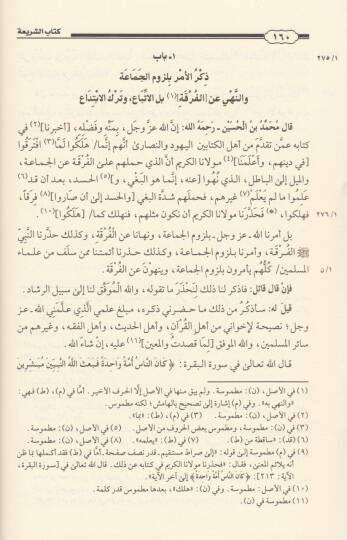 كتاب الشريعة
١٦٠
٢٧٥/١
١ - باب
ذِكْرُ الأَمْرِ بِلزومِ الجَمَاعَةِ
والنَّهْيِ عن [الفُرْقَةِ](١) بل الاتِّباع، وتَرْكُ الابْتِدَاع
قال مُحَمَّدُ بنُ الحُسَيْن - رَحِمَهُ الله: إنَّ الله عزَّ وجل، بِمَنِّه وفَضْلِه، [أخبرنا](٢) في
كتابه عمَّن تقدَّم من أهل الكتابين اليهود والنصارى أنهم [إنما] هَلَكُوا لَمَّا(٣) افْتَرقُوا
[في دينهم، وأَعْلَمَنَا](٤) مولانا الكريم أنَّ الذي حملهم على الفُرْقَة عن الجماعة،
والميل إلى الباطل، الذي نُهُوا [عنه، إنما هو البَغْي، و](٥) الحسد، بعد أن قد(٦)
عَلِمُوا ما لم يَعْلَمْ(٧) غيرهم، فحملَهم شدَّة البغي [والحسد إلى أن صاروا](٨) فِرَقاً،
فهلكوا، (*) فحَذَّرنَا مولانا الكريم أن نكون مثلهم، فنهلك كما/ [هَلَكُوا](١٠).
٢٧٦/١
بل أمرنا الله - عز وجل - بلزوم الجماعة، ونهانا عن الفُرْقَة، وكذلك حذَّرنا النَّبِيُّ
ﷺ الفُرقَة، وأمرنا بلزوم الجماعة، وكذلك حذرنا أئمتنا ممن سلف من علماء
المسلمين/ كلُّهم يأمرون بلزوم الجماعة، وينهونَ عن الفُرْقة.
٥/١
فإنْ قال قائل: فاذكر لنا ذلك لِنَحْذَرَ ما تقوله، والله المُوَفِّق لنا إلى سبيل الرشاد.
قيل له: سأذكُرُ من ذلك ما حضرني ذكره، مبلغ علمي الَّذي علَّمَني الله - عز
وجل؛ نصيحة لإخواني من أهل القُرآن، وأهل الحديث، وأهل الفقه، وغيرهم من
سائر المسلمين، والله الموفق [لما قصدتُ والمعين](١١) عليه، إنْ شاءَ الله
قال الله تعالى في سورة البقرة: ﴿كَانَ النَّاسُ أُمَّةً وَاحِدَةً فَبَعَثَ اللَّهُ النَّبِيِّينَ مُبَشِّرِينَ
(١) في (ن): مطموسة. ولم يبق منها في الأصل إلَّا الحرف الأخير. أمَّا في (م)، (ط) فهي:
«والنهي به». وفي (م) إشارة إلى تصحيح بالهامش؛ لكنه مطموس.
(٢) في الأصل، (ن): مطموسة. (٣) في (م)، (ط): «بما».
(٤) في (ن): مطموسة، ومطموس بعض الحروف من الأصل. (٥) في الأصل، (ن): مطموسة.
(٦) (قد): «ساقطة من (ط). (٧) في (م)، (ط): «يعلمه». (٨) في الأصل، (ن): مطموسة.
(٩) في (م) مطموسة إلى قوله: «إلى صراط مستقيم. قدر نصف صفحة. أمَّا في (ط) فقد أكملها بما ظن
أنه يلائم المعنى، فقال: «فحذرنا مولانا الكريم في كتابه عن ذلك. قال الله تعالى في [سورة البقرة،
الآية: ٢١٣]: ﴿كَانَ النَّاسُ أُمَّةً وَاحِدَةً﴾ إلى آخر الآية».
(١٠) في الأصل: مطموسة. وفي (ن): «هلك»، بعدها مطموس قدر كلمة.
(١١) مطموسة في (ن).